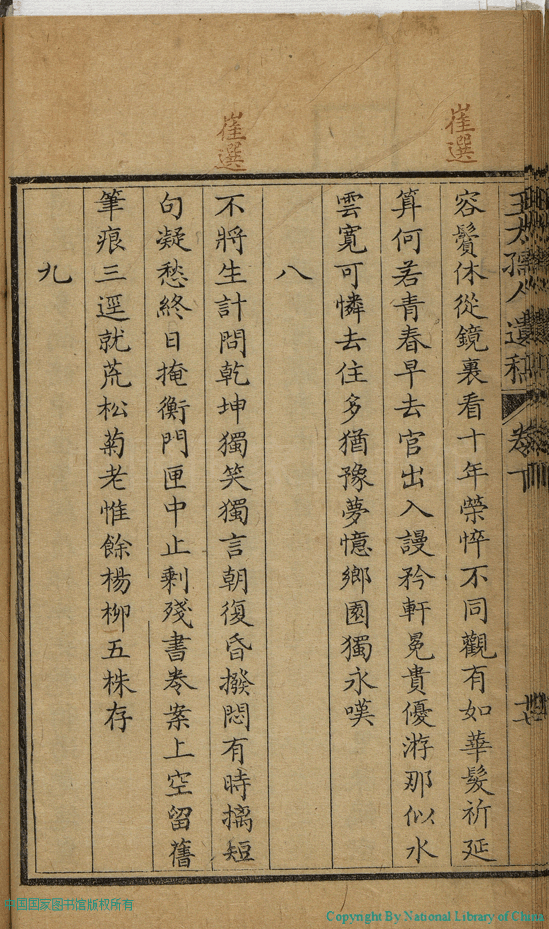 崔選
崔選
王太孺人遺稿 卷下 十七
容鬢休從鏡裏看十年榮悴不同觀有如華髮祈延
算何若青春早去官出入謾矜軒冕貴優游那似水
雲寬可憐去住多猶豫夢憶鄉園獨永嘆
八
不將生計問乾坤獨笑獨言朝復昏撥悶有時摛短
句凝愁終日掩衡門匣中止剩殘書卷案上空留舊
筆痕三逕就荒松菊老惟餘楊柳五株存
九
中国国家图书馆版权所有
Copyright By National Library of China